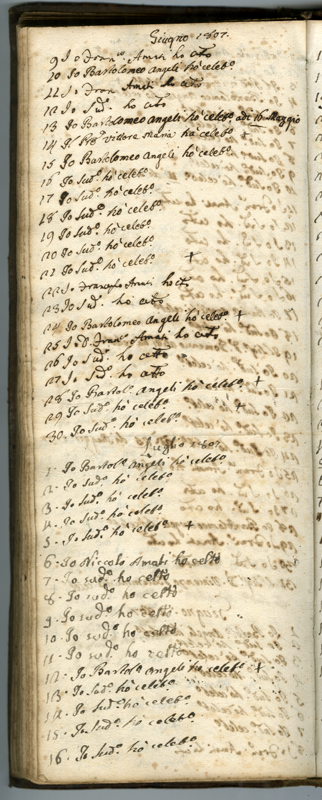 Giugno 1807.
9 Io Fran.co Amati ho cto
10 Io Bartolomeo Angeli hò celeb.o
11 Io Fran Amati ho cto
12 Io Sud.o ho cto
13 Io Bartolomeo Angeli hò celeb.o adi 16 Maggio
14 Il Vittore Maria hà celeb.o +
15 Io Bartolomeo Angeli hò celeb.o
16 Io sud.o hò celeb.o
17 Io sud.o hò celeb.o
18 Io sud.o hò celeb.o
19 Io sud.o hò celeb.o
20 Io sud.o hò celeb.o
21 Io sud.o hò celeb.o +
22 Io Francesco Amati ho cto
23 Io Sud.o ho cto
24 Io Bartolomeo Angeli hò celeb.o +
25 Io Fran.co Amati ho cto
26 Io Sud.o ho cto
27 Io Sud.o ho cto
28 Io Bartol.o Angeli hò celeb.o +
29 Io Sud.o hò celeb.o +
30. Io Sud.o hò celeb.o
Luglio 1807
1. Io Bartol.o Angeli hò celeb.o
2. Io sud.o hò celeb.o
3. Io sud.o hò celeb.o
4. Io sud.o hò celeb.o
5. Io sud.o hò celeb.o +
6. Io Niccolo Amati ho celto
7. Io sud.o ho celto
8. Io sud.o ho celto
9. Io sud.o ho celto
10. Io sud.o ho celto
11. Io sud.o ho celto
12. Io Bartol.o Angeli hò celeb.o +
13. Io Sud.o hò celeb.o
14. Io Sud.o hò celeb.o
15. Io Sud.o hò celeb.o
16. Io Sud.o hò celeb.o